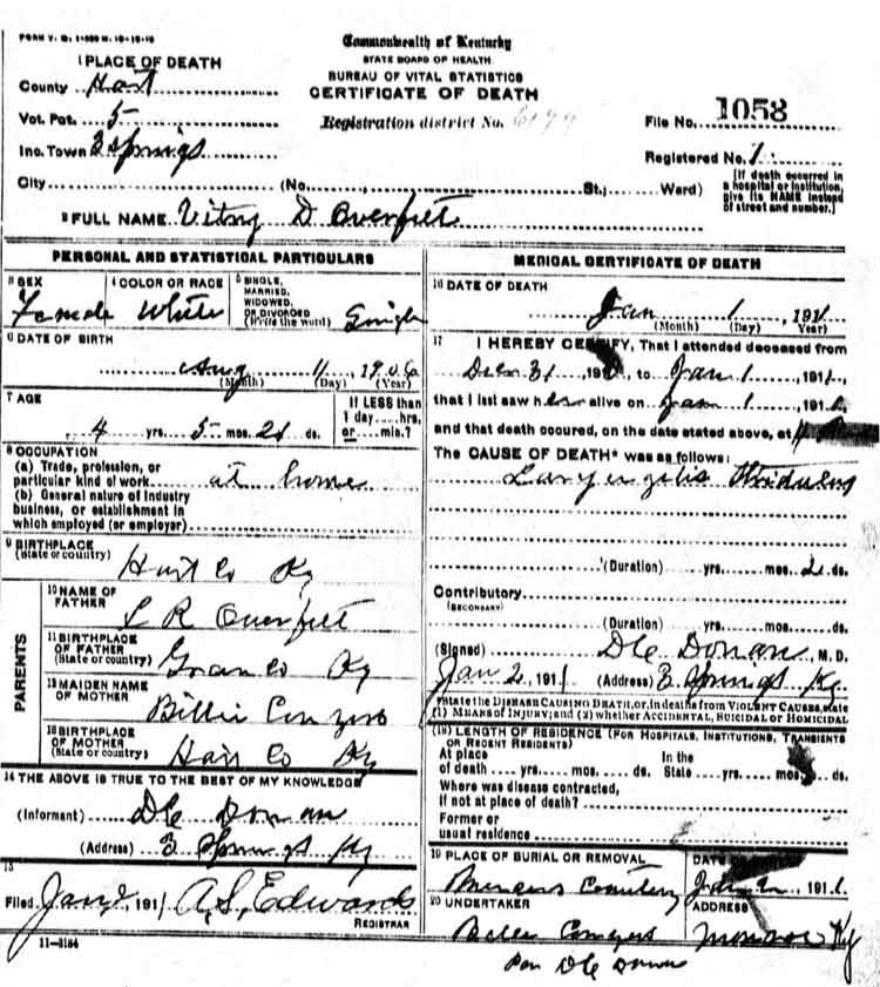 FORM V. S. 1-500 M. 10-10-10
Commonwealth of Kentucky
STATE BOARD OF HEALTH
BUREAU OF VITAL STATISTICS
CERTIFICATE OF DEATH
Registration district No.
File No. 1058
Registered No. 1
[If death occurred in a hospital or institution, give its NAME instead of street and number.]
1 PLACE OF DEATH
County Hart
Vot. Pct. 5
Inc. Town 3 Springs
City (No. , St.; Ward)
2 FULL NAME D
PERSONAL AND STATISTICAL PARTICULARS
3 SEX
Female
4 COLOR OR RACE
White
5 SINGLE, MARRIED, WIDOWED, OR DIVORCED (Write the word)
Single
6 DATE OF BIRTH
Aug 11, 1906
(Month) (Day) (Year)
7 AGE
4 yrs. 5 mos. 21 ds.
If LESS than 1 day hrs. or min.?
8 OCCUPATION
(a) Trade, profession, or
particular kind of work at home
(b) General nature of industry
business, or establishment in
which employed (or employer)
9 BIRTHPLACE
(State or country)
Hart Co Ky
PARENTS
10 NAME OF FATHER
L R
11 BIRTHPLACE OF FATHER
(State or country) Co Ky
12 MAIDEN NAME OF MOTHER
Billie
13 BIRTHPLACE OF MOTHER
(State or country) Co Ky
14 THE ABOVE IS TRUE TO THE BEST OF MY KNOWLEDGE
(Informant) Donan
(Address) 3 Springs Ky
15
Filed Jan 2, 1911 A. S. Edwards
REGISTRAR
11-3184
MEDICAL CERTIFICATE OF DEATH
16 DATE OF DEATH
Jan 1, 1911
(Month) (Day) Year)
17 I HEREBY CERTIFY, That I attended deceased from
Dec 31, 191 , to Jan 1, 1911,
that I last saw her alive on Jan 1, 1911,
and that death occured, on the date stated above, at
The CAUSE OF DEATH* was as follows:
(Duration) yrs. mos. 2 ds.
Contributory
(SECONDARY)
(Duration) yrs. mos. ds.
(Signed) Donan, M. D.
Jan 2, 1911 (Address) 3 Springs Ky.
*State the DISEASE CAUSING DEATH, or, in deaths from VIOLENT CAUSES, state
(1) MEANS of INJURY; and (2) whether ACCIDENTAL, SUICIDAL or HOMICIDAL
(18) LENGTH OF RESIDENCE (FOR HOSPITALS, INSTITUTIONS, TRANSIENTS
OR RECENT RESIDENTS)
At place of death yrs. mos. ds. In the State yrs. mos. ds.
Where was disease contracted,
If not at place of death?
Former or
usual residence
19 PLACE OF BURIAL OR REMOVAL
Cemetery
DATE
Jan 2, 1911
20 UNDERTAKER
ADDRESS
Monroe Ky